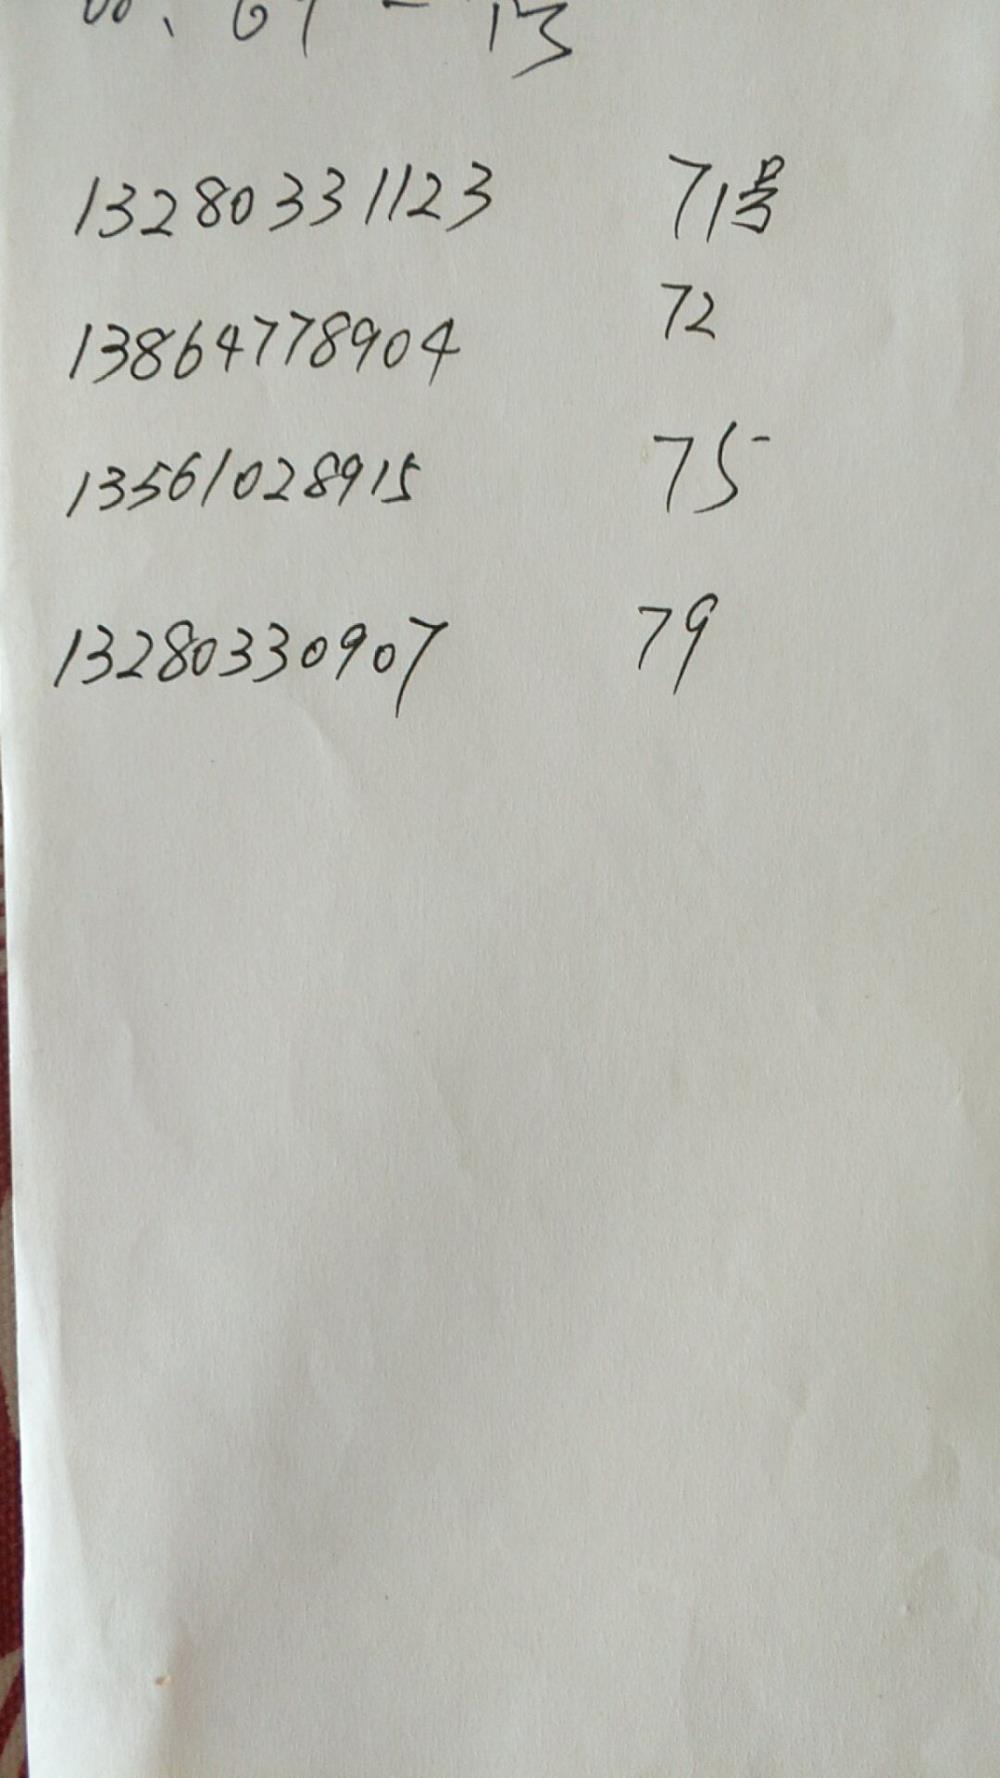 13280331123 71号
13864778904 72
13561028915 75
13280330907 79